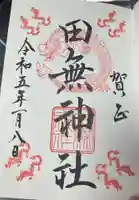 賀正
田無神社
令和五年一月八日